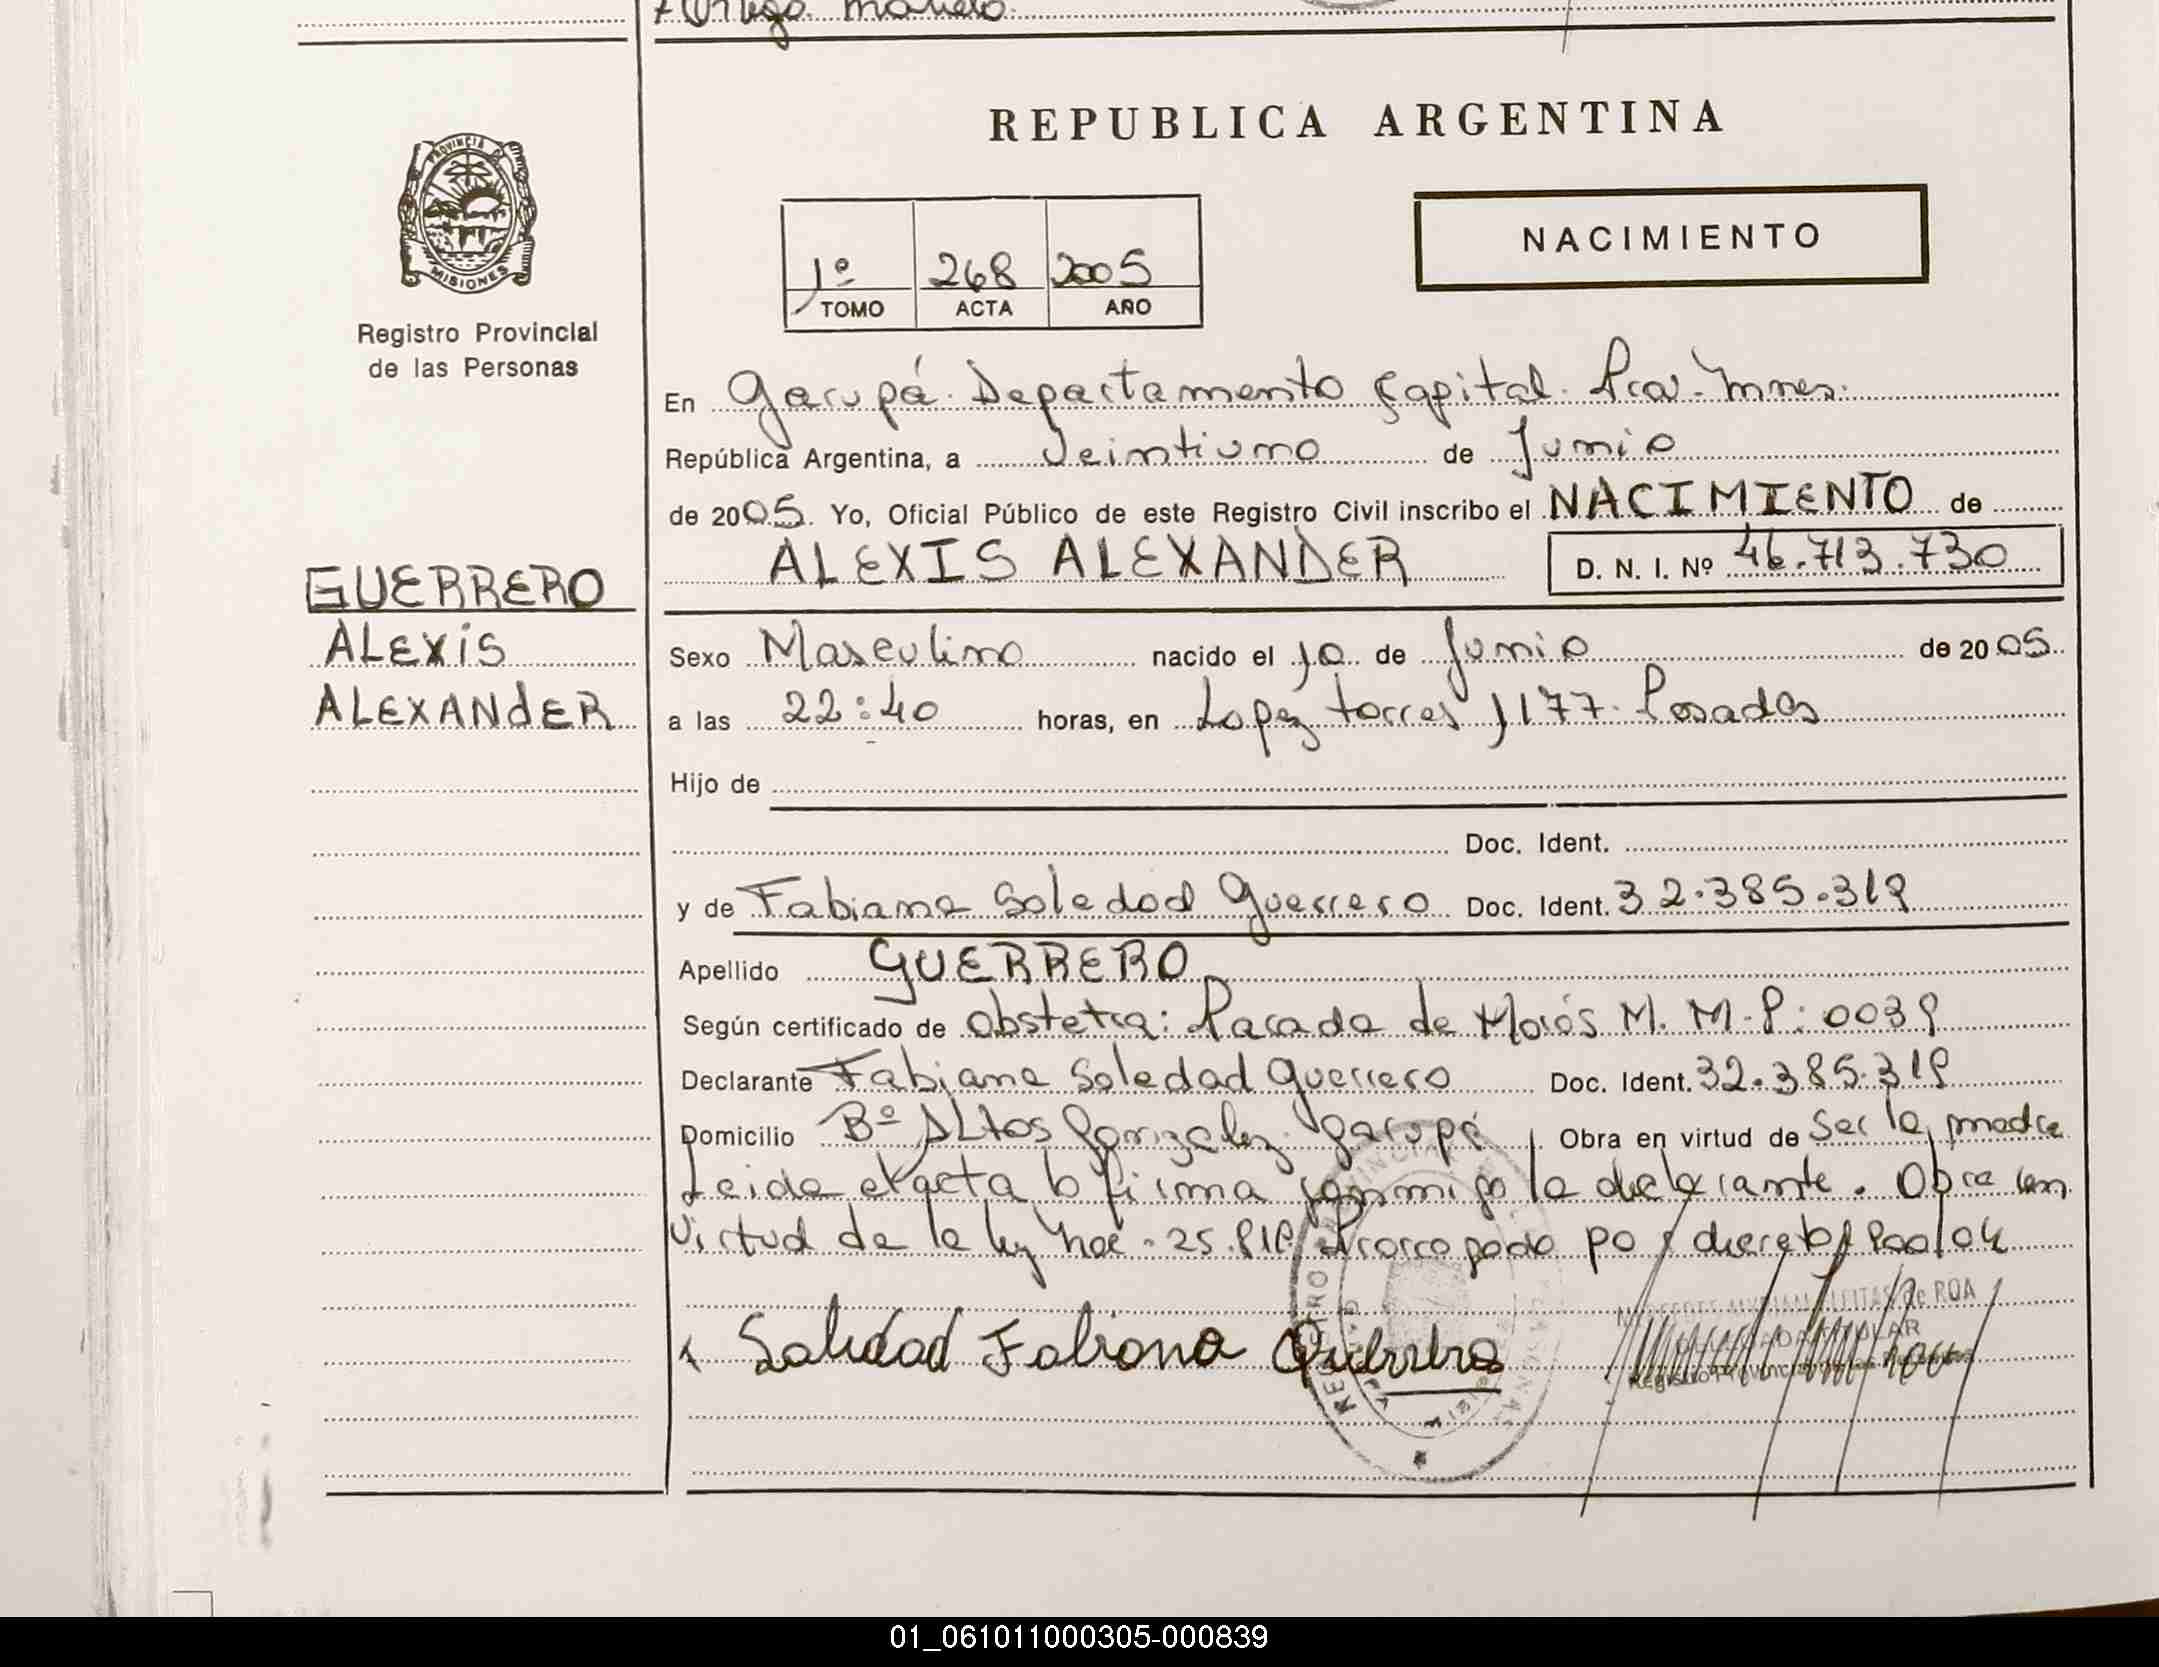 Diego Marcelo
REPUBLICA ARGENTINA
PROVINCIA DE
MISIONES
Registro Provincial
de las Personas
NACIMIENTO
1º 268 2005
TOMO ACTA AÑO
En Garupá Departamento Capital. Pcia. Mnes.
República Argentina, a Veintiuno de Junio
de 2005. Yo, Oficial Público de este Registro Civil inscribo el NACIMIENTO de
ALEXIS ALEXANDER D. N. I. Nº 46.713.730
GUERRERO
ALEXIS
ALEXANDER
Sexo Masculino nacido el 10 de Junio de 2005
a las 22:40 horas, en Lopez torres 1177. Posadas
Hijo de
Doc. Ident.
y de Fabiana Soledad Guerrero Doc. Ident. 32.385.319
Apellido GUERRERO
Según certificado de Obstetra: Parada de Morós M. M.P: 0039
Declarante Fabiana Soledad Guerrero Doc. Ident. 32.385.319
Domicilio Bº ALtos Gonzalez. Garupá Obra en virtud de Ser la madre
Leida el acta la firma conmigo la declarante. Obra en
Virtud de la ley nac. 25.819 Prorrogado por decreto
Soledad Fabiana Guerrero
de ROA
01_061011000305-000839